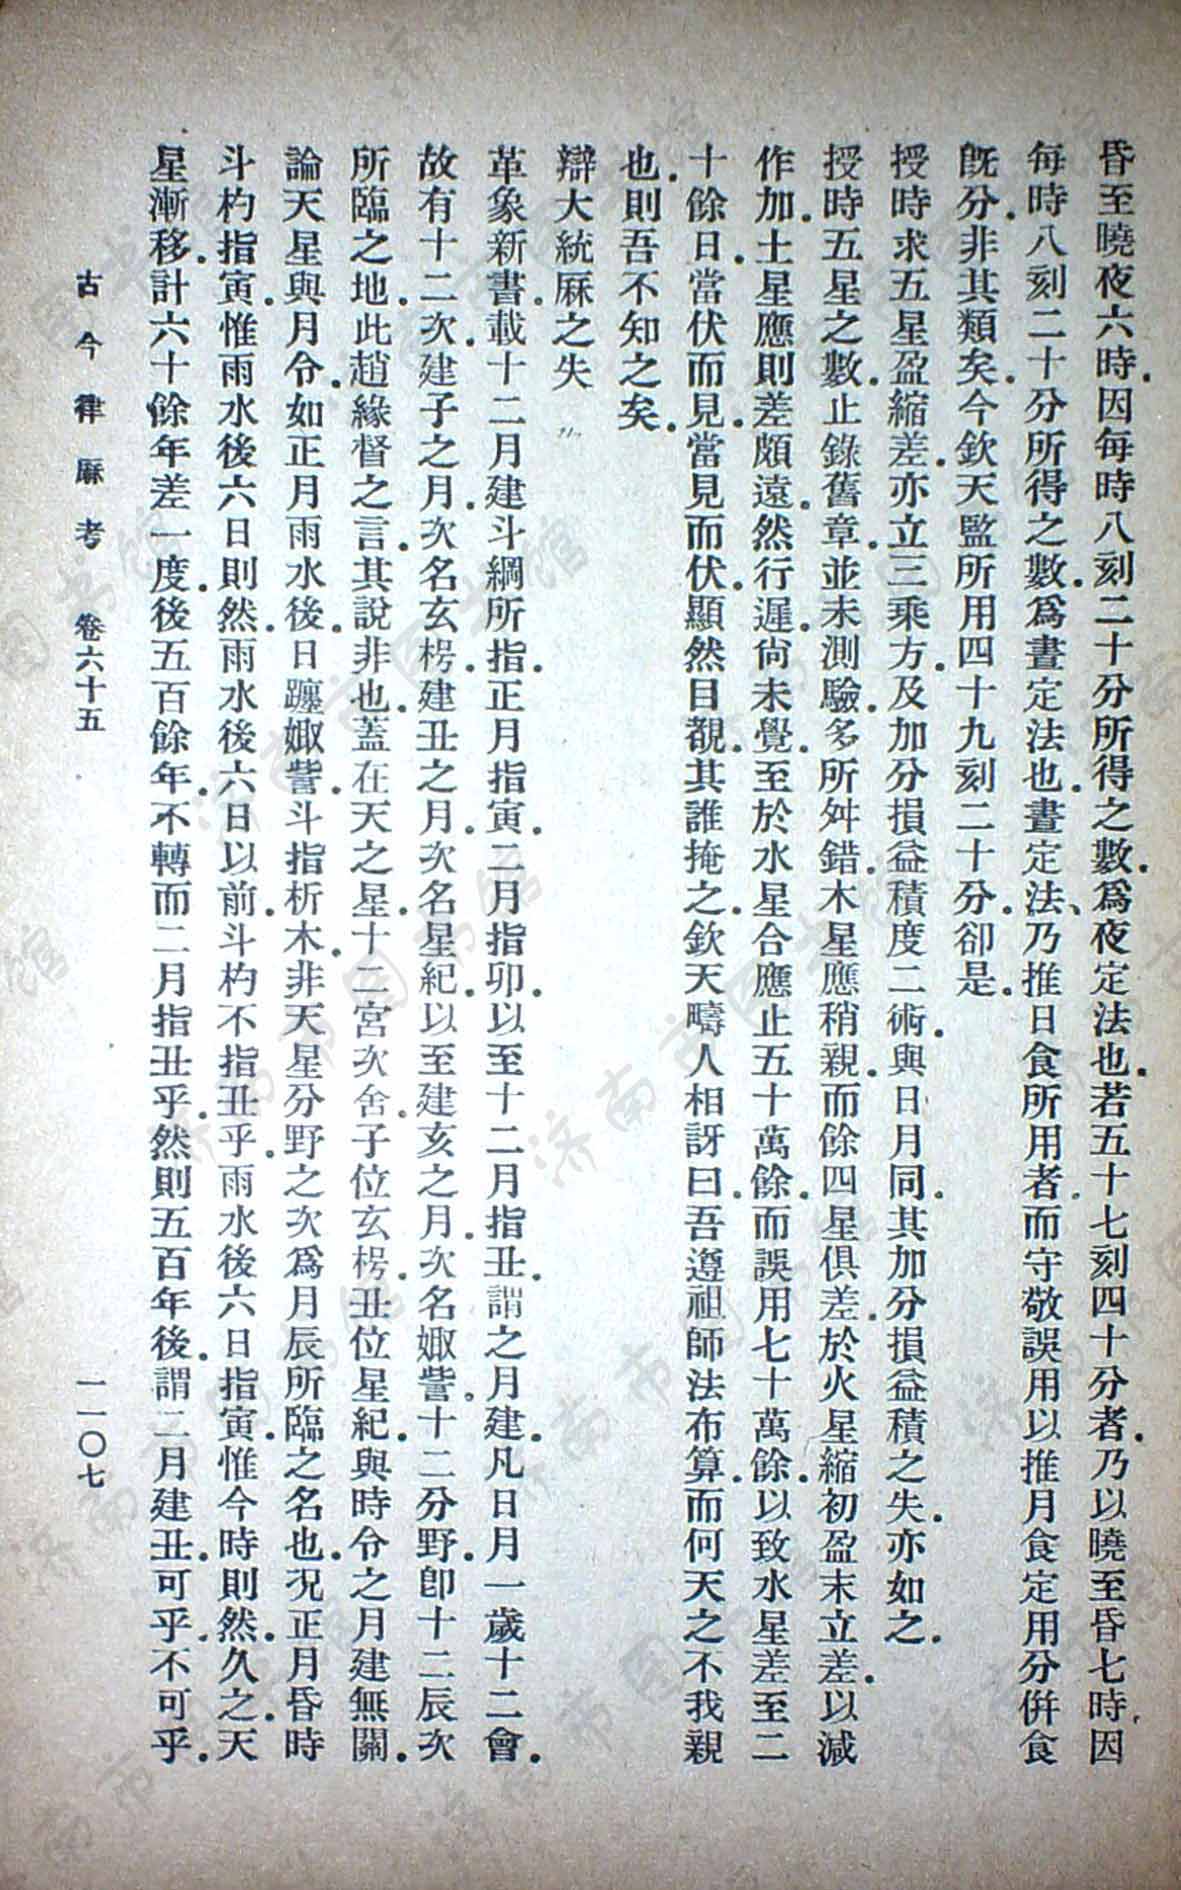 昏至曉夜六時因每時八刻二十分所得之數爲夜定法也若五十七刻四十分者乃以曉至昏七時因
每時八刻二十分所得之數爲晝定法也晝定法乃推日食所用者而守敬誤用以推月食定用分倂食
旣分非其類矣今欽天監所用四十九刻二十分卻是
授時求五星盈縮差亦立三乘方及加分損益積度二術與日月同其加分損益積之失亦如之
授時五星之數止錄舊章並未測驗多所舛錯木星應稍親而餘四星俱差於火星縮初盈末立差以減
作加土星應則差頗遠然行遲尙未覺至於水星合應止五十萬餘而誤用七十萬餘以致水星差至二
十餘日當伏而見當見而伏顯然目覩其誰掩之欽天疇人相訝曰吾遵祖師法布算而何天之不我親
也則吾不知之矣
辯大統厤之失
革象新書載十二月建斗綱所指正月指寅二月指卯以至十二月指丑謂之月建凡日月一歲十二會
故有十二次建子之月次名玄枵建丑之月次名星紀以至建亥之月次名娵訾十二分野卽十二辰次
所臨之地此趙緣督之言其說非也蓋在天之星十二宮次舍子位玄枵丑位星紀與時令之月建無關
論天星與月令如正月雨水後日躔娵訾斗指析木非天星分野之次爲月辰所臨之名也況正月昏時
斗杓指寅惟雨水後六日則然雨水後六日以前斗杓不指丑乎雨水後六日指寅惟今時則然久之天
星漸移計六十餘年差一度後五百餘年不轉而二月指丑乎然則五百年後謂二月建丑可乎不可乎
古今律厤考 卷六十五 一一〇七
济南市图书馆